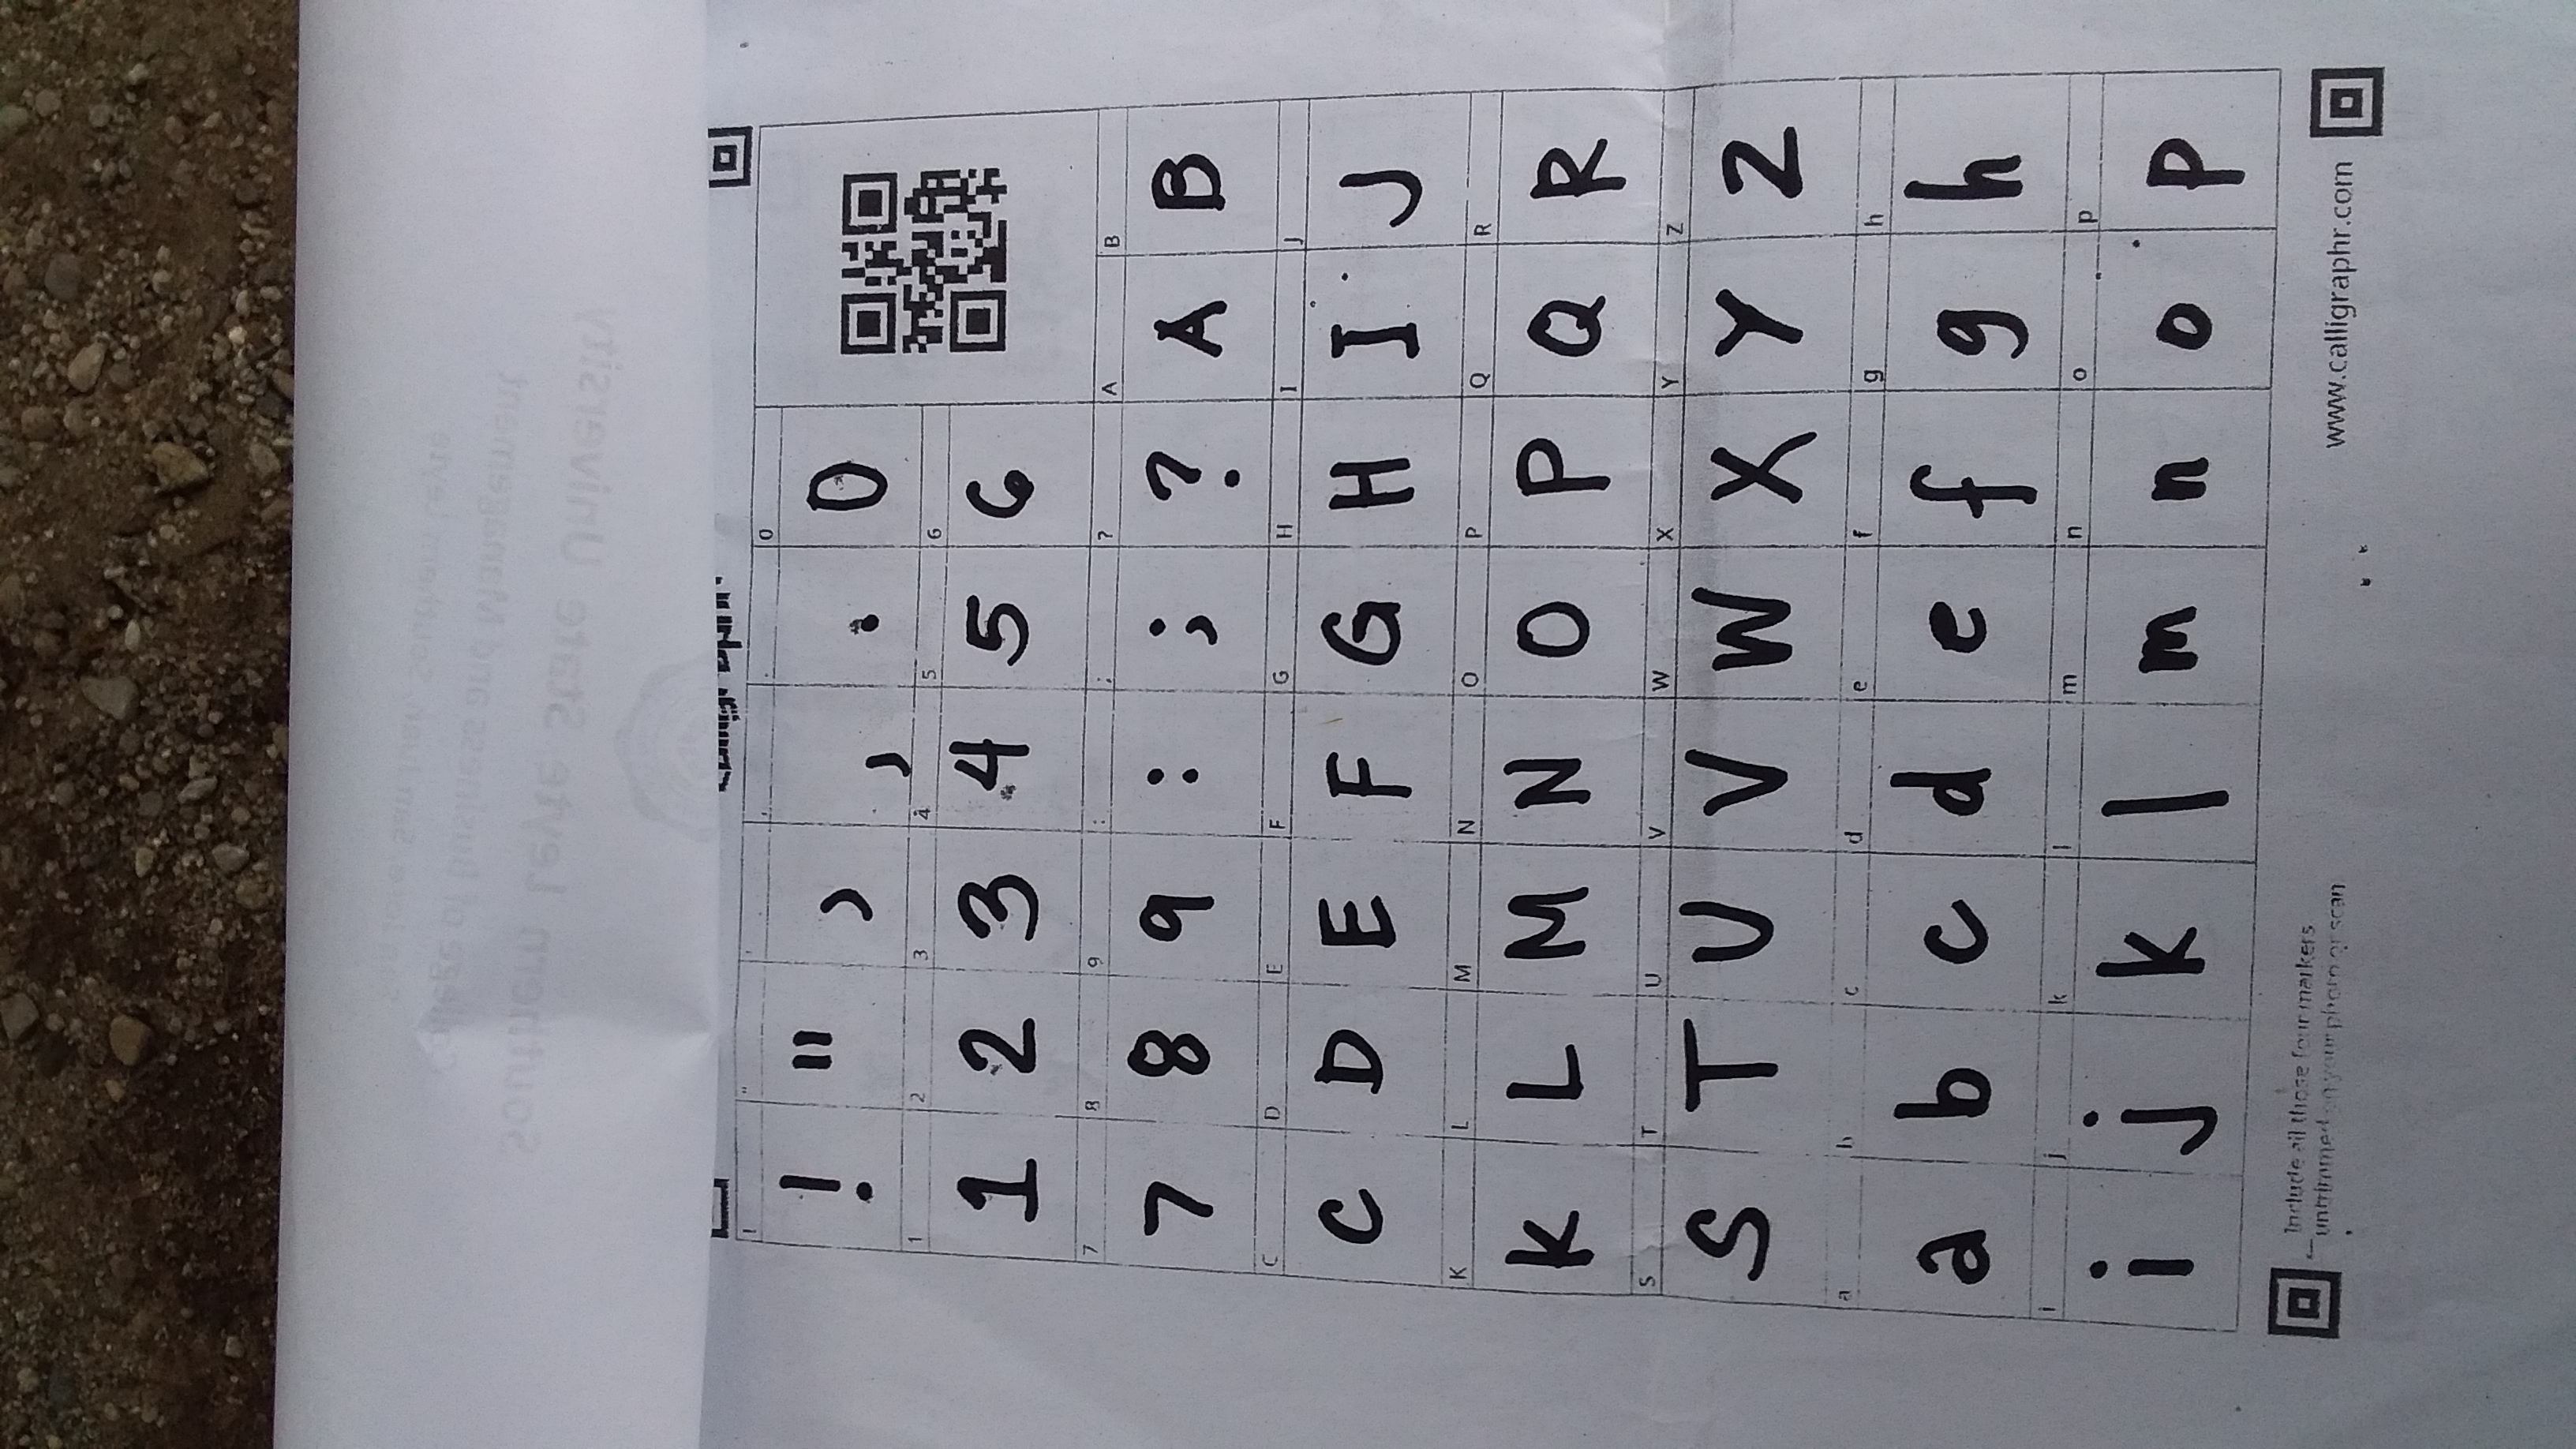 San Jose, San Juan, Southern Leyte
College of Business and Management
Southern Leyte State University
Calligraphr
! " ' , . 0
! " , , . 0
1 2 3 4 5 6
1 2 3 4 5 6
7 8 9 : ; ? A B
7 8 9 : ; ? A B
C D E F G H I J
C D E F G H I J
K L M N O P Q R
K L M N O P Q R
S T U V W X Y Z
S T U V W X Y Z
a b c d e f g h
a b c d e f g h
i j k l m n o p
i j k l m n o p
Include all those four markers
untrimmed on your photo or scan
www.calligraphr.com